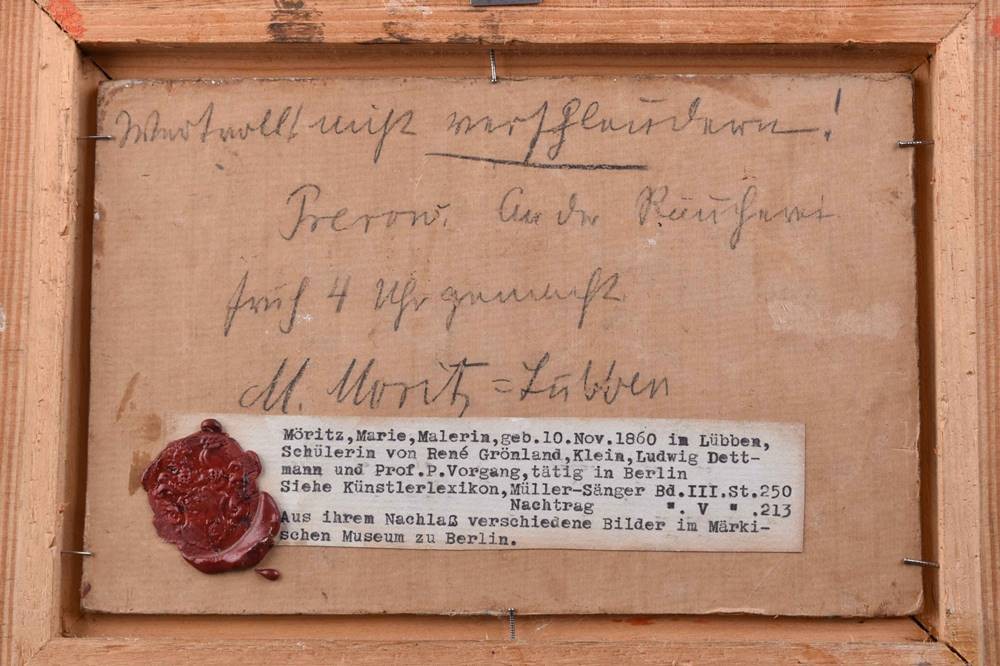 Wertvoll! nicht verschleudern!
Prerow. An der Räucherei
früh 4 Uhr gemacht
M. Moritz=Lübben
Möritz,Marie,Malerin,geb.10.Nov.1860 in Lübben,
Schülerin von René Grönland,Klein,Ludwig Dett-
mann und Prof.P.Vorgang,tätig in Berlin
Siehe Künstlerlexikon,Müller-Sänger Bd.III.St.250
Nachtrag ". V " .213
Aus ihrem Nachlaß verschiedene Bilder im Märki-
schen Museum zu Berlin.